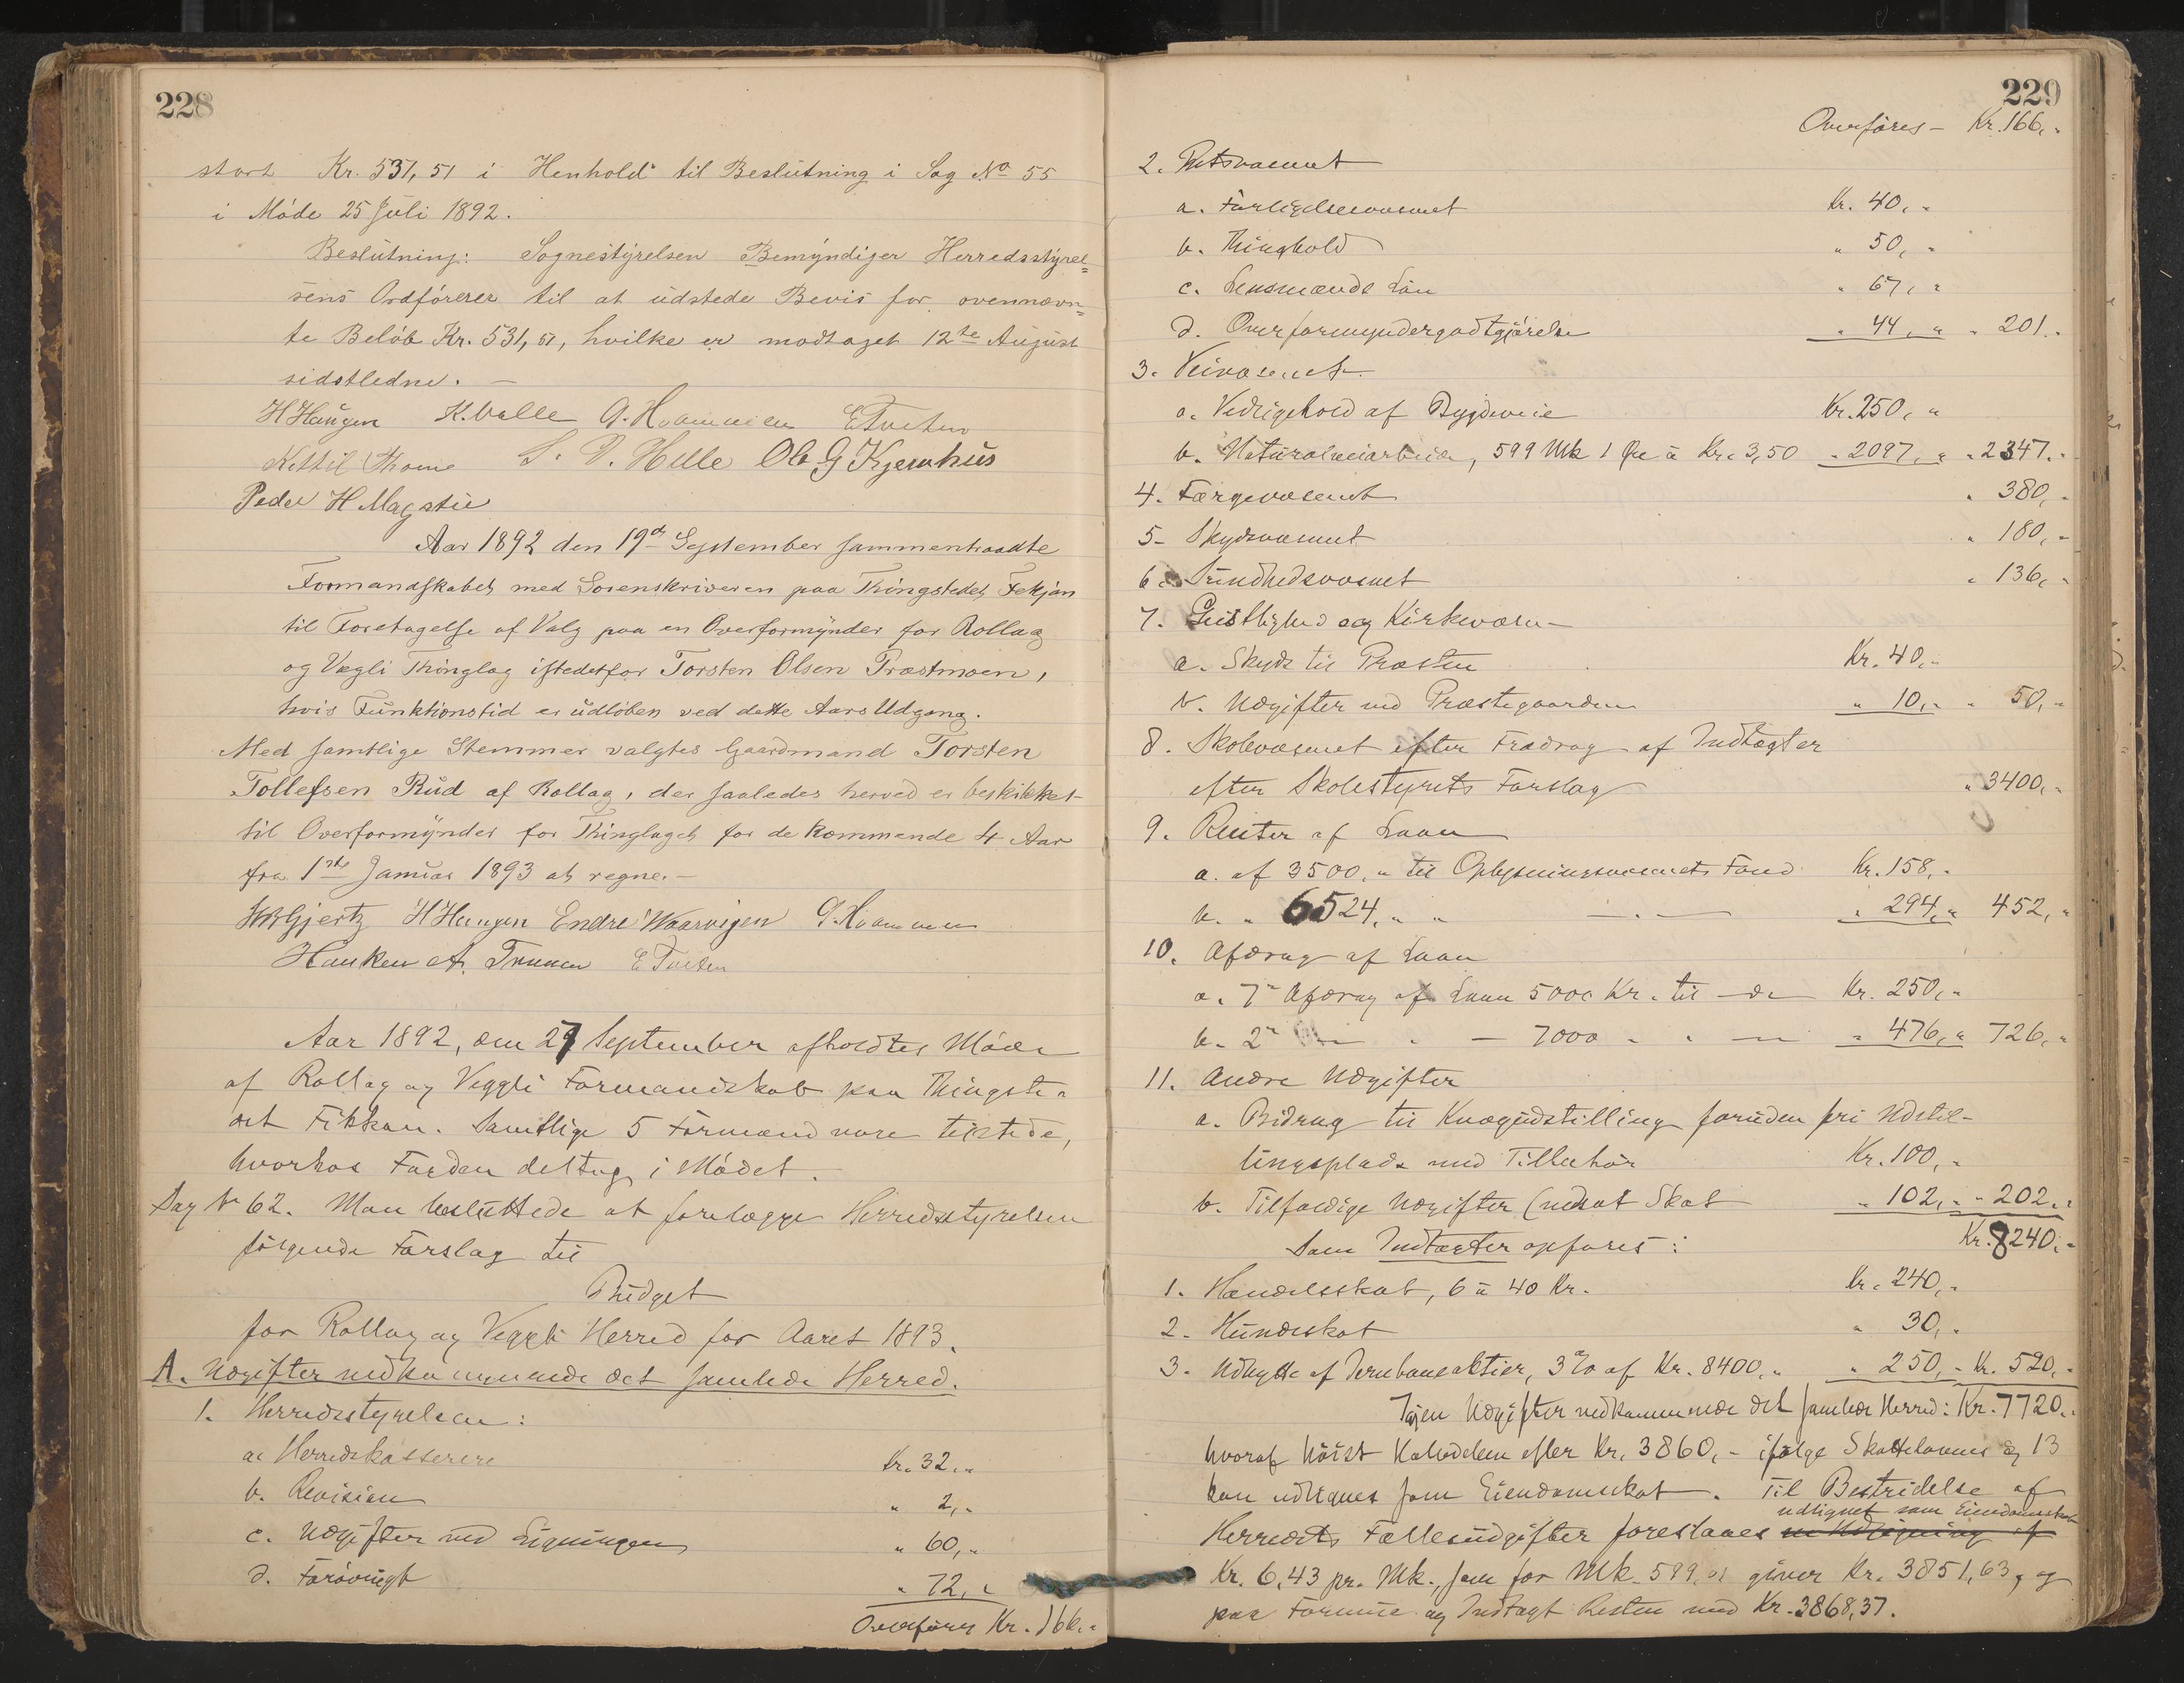 228
stort Kr. 531,51 i Henhold til Beslutning i Sag No 55
i Møde 25 Juli 1892.
Beslutning: Sognestyrelsen Bemyndiger Herredsstyrel=
sens Ordfører til at udstede Bevis for ovennævn=
te Beløb Kr. 531,51, hvilke er modtaget 12te August
sidstledne. —
H Haugen K. Valle G. Hvammen E Tveten
Kettil Thome S. D. Helle Ole G Kjemhus
Peder H Magstu
Aar 1892 den 19de September sammentraadte
Formandskabet med Sorenskriveren paa Thingstedet Fekjan
til Foretagelse af Valg paa en Overformynder for Rollag
og Vegli Thinglag istedetfor Torsten Olsen Præstmoen,
hvis Funktionstid er udløben ved dette Aars Udgang.
Med samtlige Stemmer valgtes Gaardmand Torsten
Tollefsen Rud af Rollag, der saaledes herved er beskikket
til Overformynder for Thinglaget for de kommende 4 Aar
fra 1ste Januar 1893 at regne. —
Gjertz H Haugen Endre Waarvigen G. Hvammen
E Tveten
Aar 1892, den 27 September afholdtes Møde
af Rollag og Veggli Formandskab paa Thingste-
det Fikkan. Samtlige 5 Formænd vare tilstede,
hvorhos Fogden deltog i Mødet.
Sag No 62. Man besluttede at forelægge Herredsstyrelsen
følgende Forslag til
Budget
for Rollag og Veggli Herred for Aaret 1893.
A. Udgifter vedkommende det samlede Herred.
1. Herredsstyrelsen:
a. Herredskasserer Kr. 32,"
b. Revision " 2,"
c. Udgifter ved Ligningen " 60,"
d. Forøvrigt " 72,"
Overføres Kr. 166,"
229
Overføres — Kr. 166,"
2. Retsvæsenet
a. Forligelsesvæsenet Kr. 40,"
b. Thinghold " 50,"
c. Lensmænds Løn " 67,"
d. Overformyndergodtgjørelse " 44," " 201."
3. Veivæsenet
a. Vedligehold af Bygdeveie Kr. 250,"
b. Naturalveiarbeide, 599 Mk 1 Øre à Kr. 3,50 " 2097," " 2347."
4. Færgevæsenet " 380,"
5. Skydsvæsenet " 180,"
6. Sundhedsvæsnet " 136,"
7. Geistlighed og Kirkevæsen —
a. Skyds til Præsten Kr. 40,"
b. Udgifter ved Præstegaarden " 10," " 50,"
8. Skolevæsenet efter Fradrag af Indtægter
efter Skolestyrets Forslag " 3400,"
9. Renter af Laan
a. af 3500," til Oplysningsvæsenets Fond Kr. 158,"
b. " 6524," " — " — " 294," 452,"
10. Afdrag af Laan
a. 7de Afdrag af Laan 5000 Kr. til — do Kr. 250,"
b. 2det — " — 7000 " " — " 476," 726,"
11. Andre Udgifter
a. Bidrag til Kvægudstilling foruden fri Udstil-
lingsplads med Tilbehør Kr. 100,"
b. Tilfældige Udgifter (uvist Skat " 102," " 202."
Kr. 8240."
Som Indtægter opføres:
1. Handelsskat, 6 à 40 Kr. Kr. 240,"
2. Hundeskat " 30,"
3. Udbytte af Jernbaneaktier, 3% af Kr. 8400," " 250," Kr. 520,"
Igjen Udgifter vedkommende det samlede Herred: Kr. 7720."
hvoraf høist Halvdelen eller Kr. 3860,- ifølge Skatteloven § 13
kan udlignes som Eiendomsskat. Til Bestridelse af
udlignet som Eiendomsskat
Herredets Fællesudgifter foreslaaes en Udligning af
Kr. 6,43 pr. Mk., som for Mk. 599,01 giver Kr. 3851,63, og
paa Formue og Indtægt Resten med Kr. 3868,37.